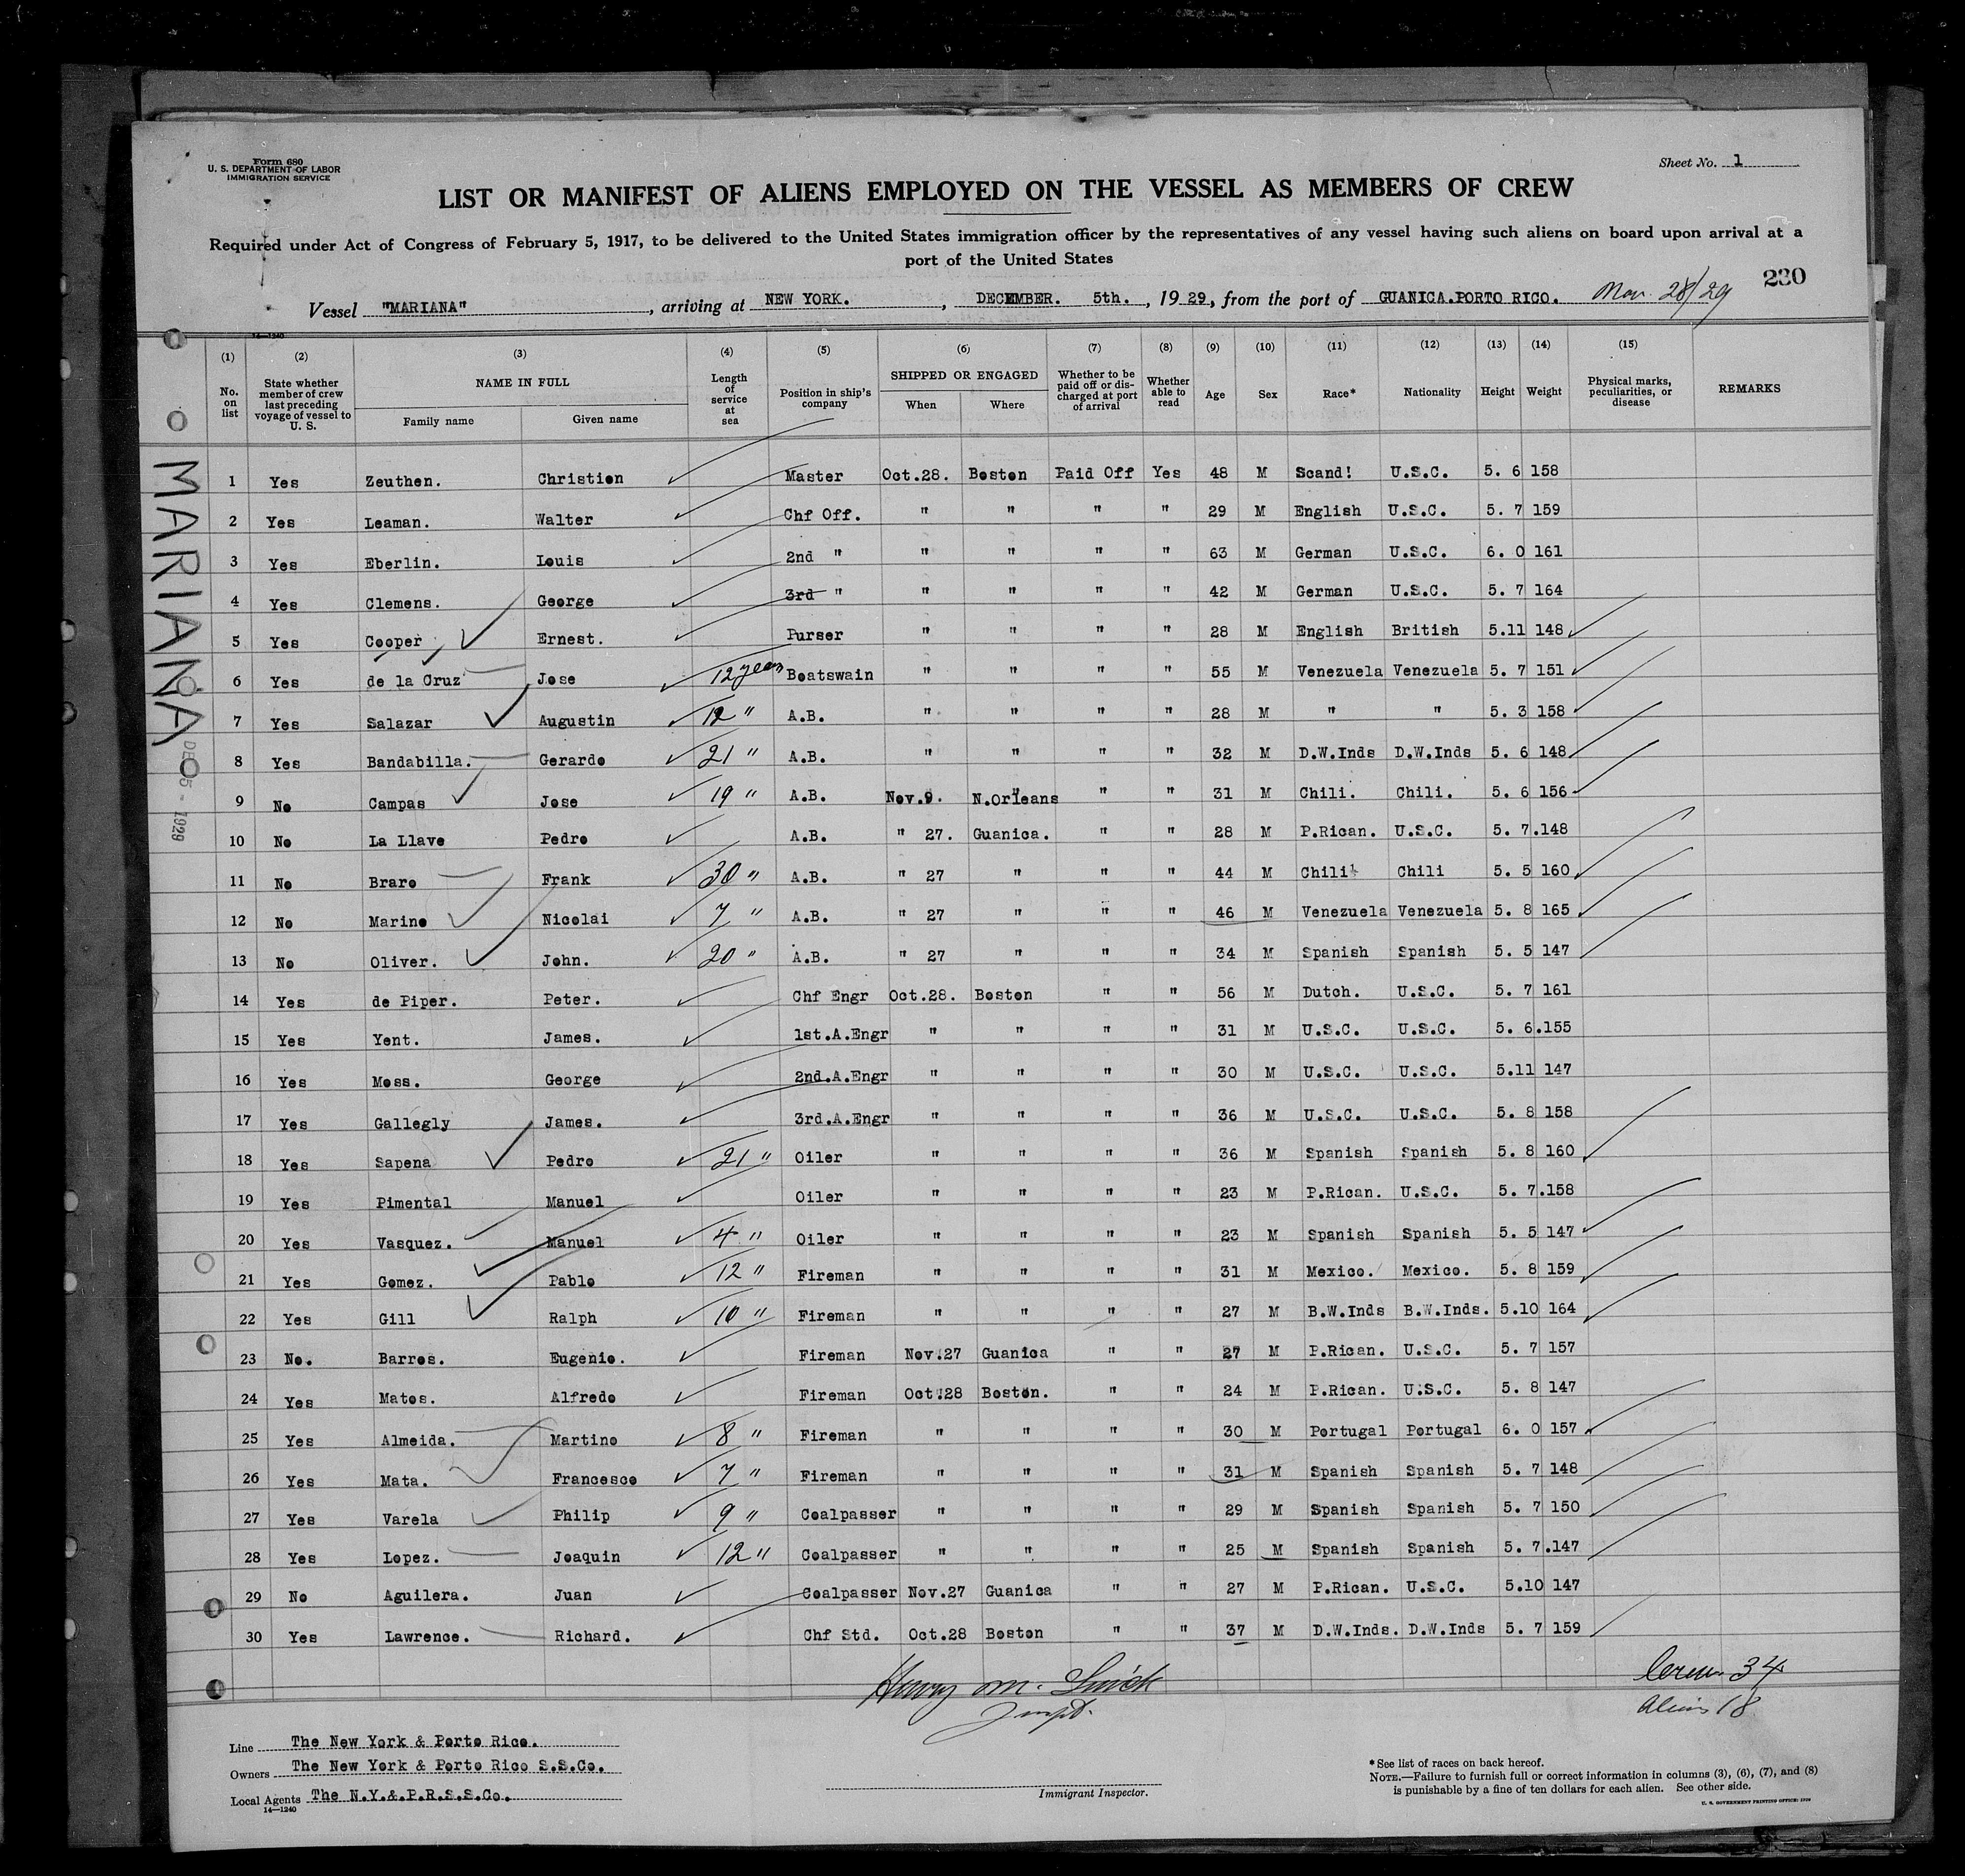 Form 680
U. S. DEPARTMENT OF LABOR
IMMIGRATION SERVICE
Sheet No. 1
LIST OR MANIFEST OF ALIENS EMPLOYED ON THE VESSEL AS MEMBERS OF CREW
Required under Act of Congress of February 5, 1917, to be delivered to the United States immigration officer by the representatives of any vessel having such aliens on board upon arrival at a
port of the United States
230
Vessel "MARIANA", arriving at NEW YORK., DECEMBER. 5th., 1929, from the port of GUANICA.PORTO RICO. Nov. 28/29
14—1240
(1) (2) (3) (4) (5) (6) (7) (8) (9) (10) (11) (12) (13) (14) (15)
No. on list
State whether member of crew last preceding voyage of vessel to U. S.
NAME IN FULL
Family name Given name
Length of service at sea
Position in ship's company
SHIPPED OR ENGAGED
When Where
Whether to be paid off or discharged at port of arrival
Whether able to read
Age Sex Race* Nationality Height Weight
Physical marks, peculiarities, or disease
REMARKS
MARIANA
DEC 5 - 1929
1 Yes Zeuthen. Christion Master Oct.28. Boston Paid Off Yes 48 M Scand! U.S.C. 5. 6 158
2 Yes Leaman. Walter Chf Off. " " " " 29 M English U.S.C. 5. 7 159
3 Yes Eberlin. Louis 2nd " " " " " 63 M German U.S.C. 6. 0 161
4 Yes Clemens. George 3rd " " " " " 42 M German U.S.C. 5. 7 164
5 Yes Cooper Ernest. Purser " " " " 28 M English British 5.11 148
6 Yes de la Cruz Jose 12 years Boatswain " " " " 55 M Venezuela Venezuela 5. 7 151
7 Yes Salazar Augustin 12 " A.B. " " " " 28 M " " 5. 3 158
8 Yes Bandabilla. Gerardo 21 " A.B. " " " " 32 M D.W.Inds D.W.Inds 5. 6 148
9 No Campas Jose 19 " A.B. Nov.9. N.Orleans " " 31 M Chili. Chili. 5. 6 156
10 No La Llave Pedro A.B. " 27. Guanica. " " 28 M P.Rican. U.S.C. 5. 7.148
11 No Braro Frank 30 " A.B. " 27 " " " 44 M Chili Chili 5. 5 160
12 No Marino Nicolai 7 " A.B. " 27 " " " 46 M Venezuela Venezuela 5. 8 165
13 No Oliver. John. 20 " A.B. " 27 " " " 34 M Spanish Spanish 5. 5 147
14 Yes de Piper. Peter. Chf Engr Oct.28. Boston " " 56 M Dutch. U.S.C. 5. 7 161
15 Yes Yent. James. 1st.A.Engr " " " " 31 M U.S.C. U.S.C. 5. 6.155
16 Yes Moss. George 2nd.A.Engr " " " " 30 M U.S.C. U.S.C. 5.11 147
17 Yes Gallegly James. 3rd.A.Engr " " " " 36 M U.S.C. U.S.C. 5. 8 158
18 Yes Sapena Pedro 21 " Oiler " " " " 36 M Spanish Spanish 5. 8 160
19 Yes Pimental Manuel Oiler " " " " 23 M P.Rican. U.S.C. 5. 7.158
20 Yes Vasquez. Manuel 4 " Oiler " " " " 23 M Spanish Spanish 5. 5 147
21 Yes Gomez. Pablo 12 " Fireman " " " " 31 M Mexico. Mexico. 5. 8 159
22 Yes Gill Ralph 10 " Fireman " " " " 27 M B.W.Inds B.W.Inds. 5.10 164
23 No. Barros. Eugenio. Fireman Nov.27 Guanica " " 27 M P.Rican. U.S.C. 5. 7 157
24 Yes Matos. Alfredo Fireman Oct.28 Boston. " " 24 M P.Rican. U.S.C. 5. 8 147
25 Yes Almeida. Martino 8 " Fireman " " " " 30 M Portugal Portugal 6. 0 157
26 Yes Mata. Francesco 7 " Fireman " " " " 31 M Spanish Spanish 5. 7 148
27 Yes Varela Philip 9 " Coalpasser " " " " 29 M Spanish Spanish 5. 7 150
28 Yes Lopez. Joaquin 12 " Coalpasser " " " " 25 M Spanish Spanish 5. 7.147
29 No Aguilera. Juan Coalpasser Nov.27 Guanica " " 27 M P.Rican. U.S.C. 5.10 147
30 Yes Lawrence. Richard. Chf Std. Oct.28 Boston " " 37 M D.W.Inds. D.W.Inds 5. 7 159
Henry M.
Crew 34
Aliens 18
Line The New York & Porto Rico.
Owners The New York & Porto Rico S.S.Co.
Local Agents The N.Y.& P.R.S.S.Co.
14—1240
Immigrant Inspector.
*See list of races on back hereof.
NOTE.—Failure to furnish full or correct information in columns (3), (6), (7), and (8)
is punishable by a fine of ten dollars for each alien. See other side.